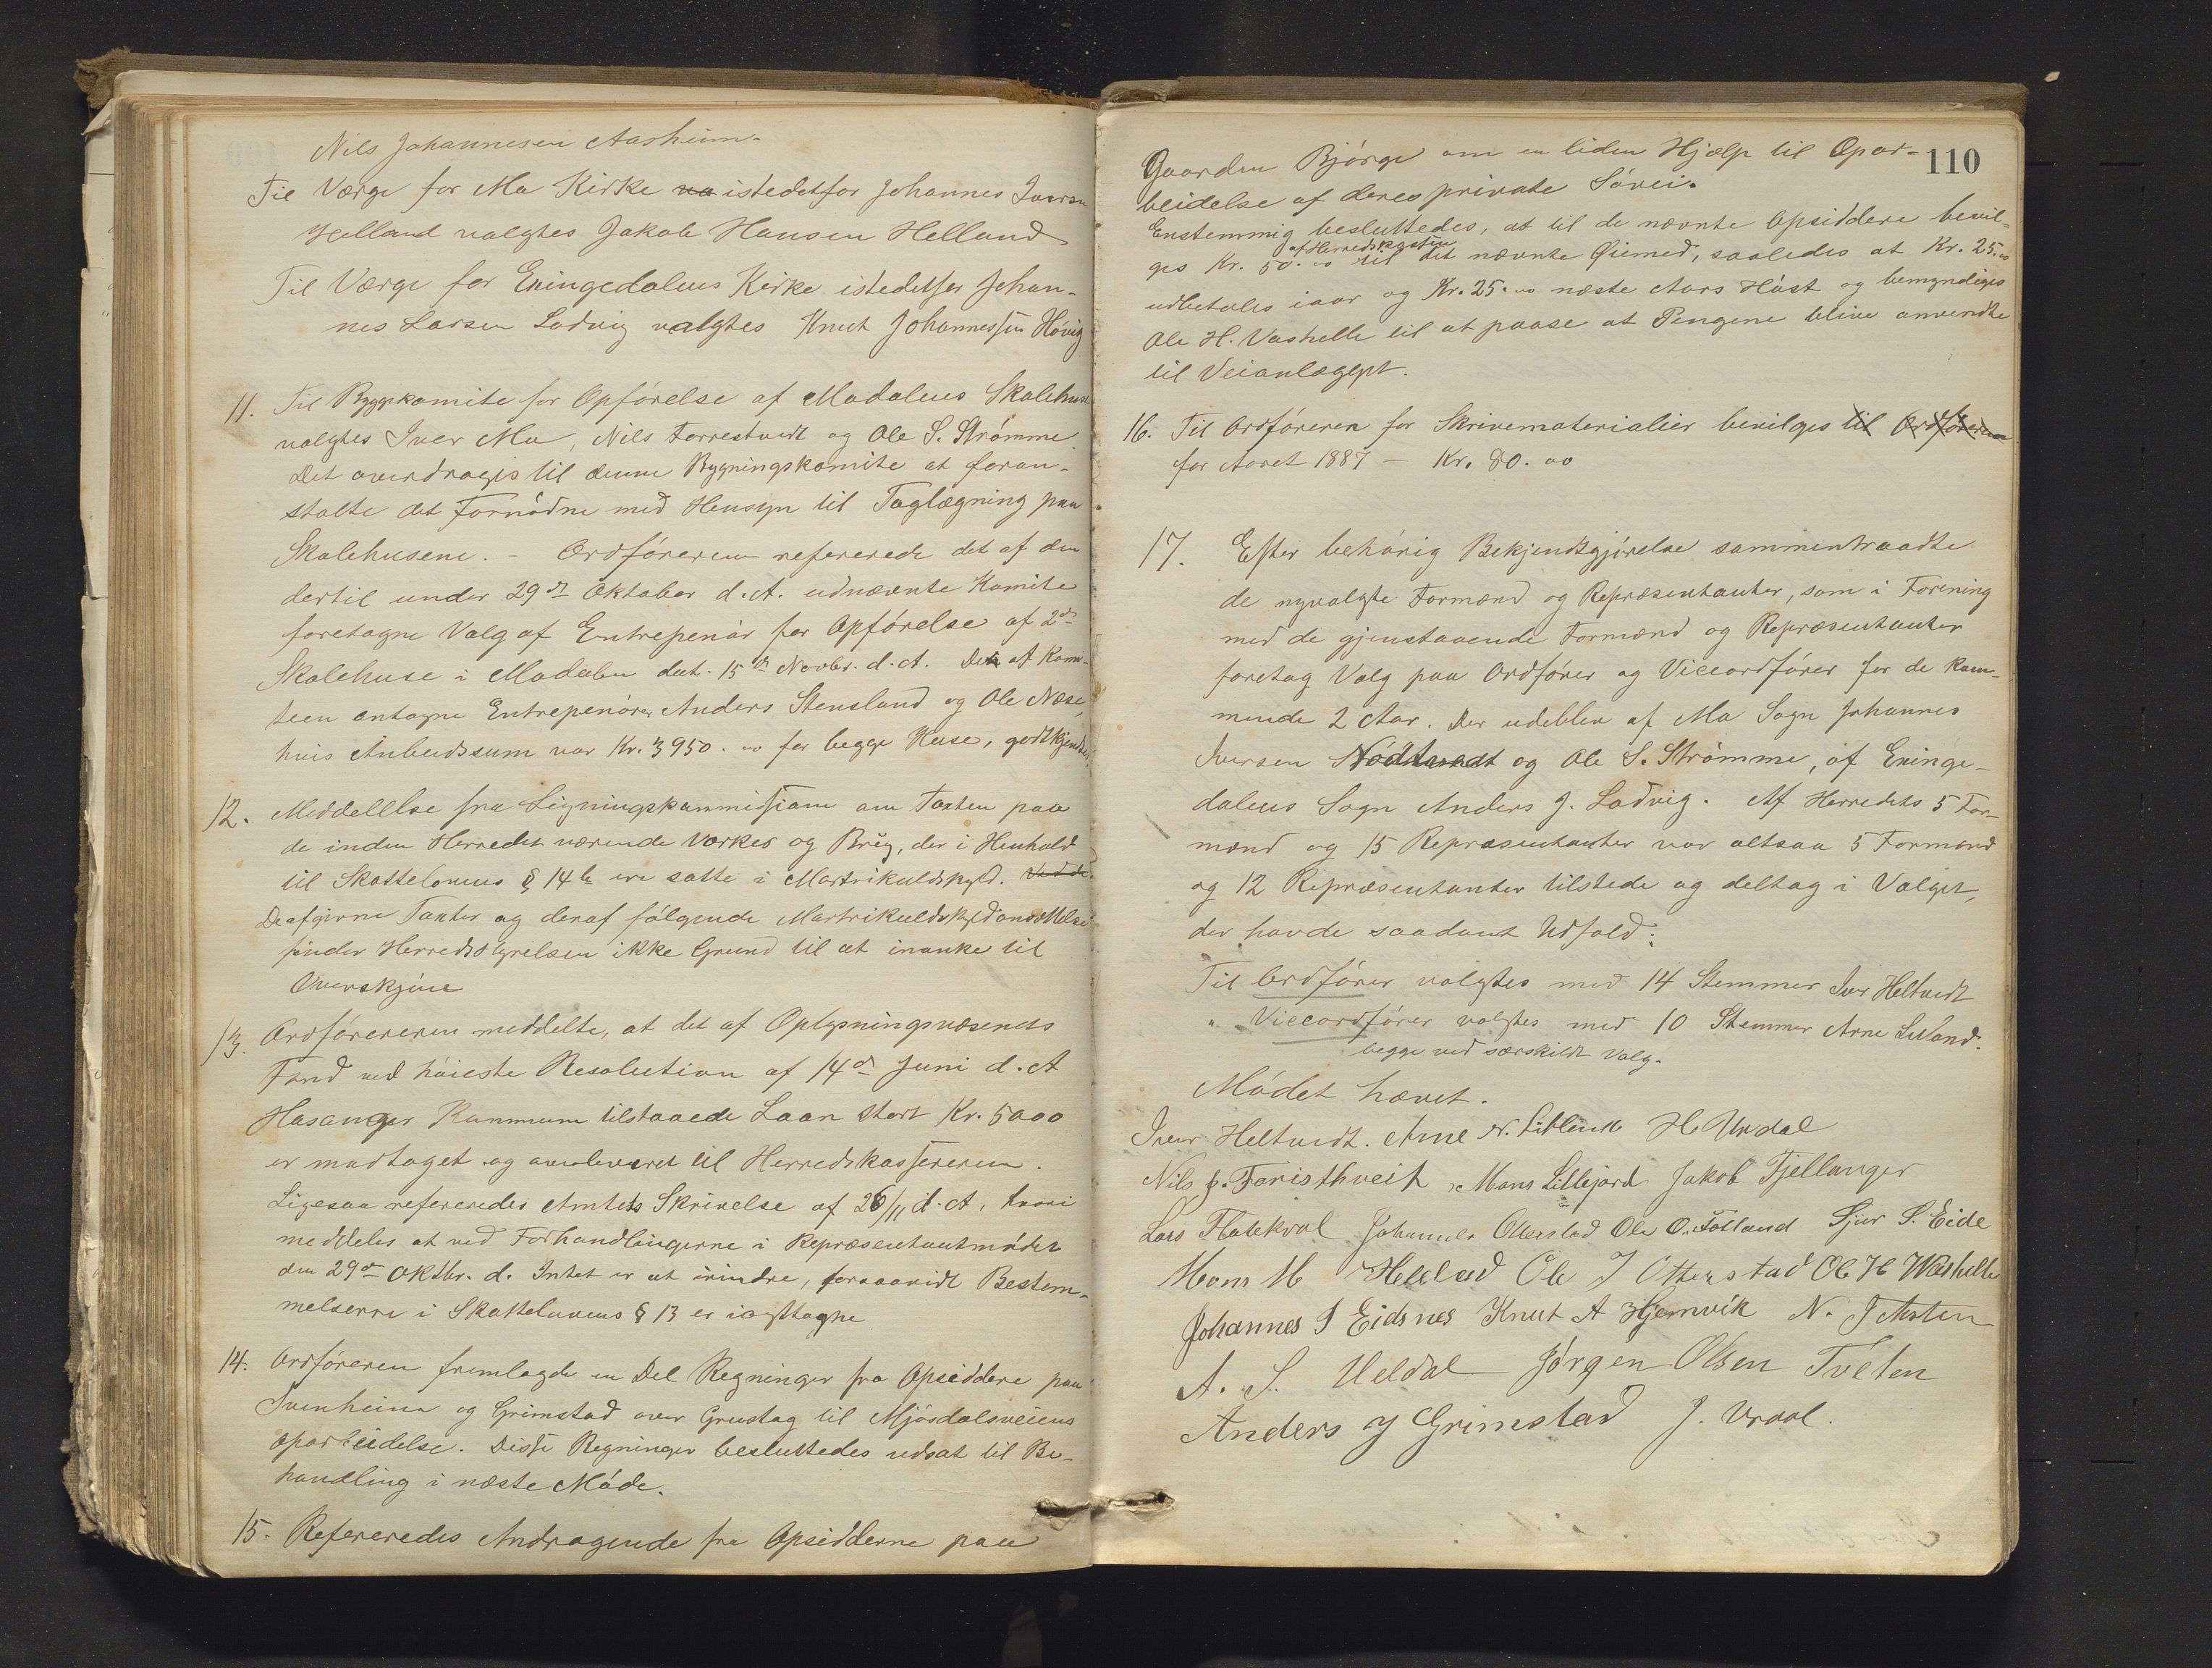 Nils Johannesen Aasheim.
Til Værge for Mo Kirke va istedetfor Johannes Iversen
Helland valgtes Jakob Hansen Helland
Til Værge for Eningedalens Kirke istedetfor Johan-
nes Larsen Lodvig valgtes Knut Johannessen Høvig
11. Til Byggekomite for Opførelse af Modalens Skolehuse
valgtes Iver Mo, Nils Farrestvedt og Ole S. Strømme
Det overdroges til denne Bygningskomite at foran-
stalte det Fornødne med Hensyn til Taglægning paa
Skolehusene. – Ordføreren refererede det af den
dertil under 29de Oktober d. A. udnævnte Komite
foretagne Valg af Entrepenør for Opførelse af 2de
Skolehuse i Modalen dat. 15de Novbr. d. A. De af Komi-
teen antagne Entrepenører Anders Stensland og Ole Næse,
hvis Anbudssum var Kr. 3950.00 for begge Huse, godtkjendtes.
12. Meddelelse fra Ligningskommissionen om Taxten paa
de inden Herredet værende Værker og Brug, der i Henhold
til Skattelovens § 14 b ere satte i Martrikulskyld. Ved de
De afgivne Taxter og deraf følgende Martrikulskyldansættelse
finder Herredsstyrelsen ikke Grund til at inanke til
Overskjøn
13. Ordføreren meddelte, at det af Oplysningsvæsenets
Fond ved høieste Resolution af 14de Juni d. A
Hosanger Kommune tilstaaede Laan stort Kr. 5000
er modtaget og avleveret til Herredskassereren.
Ligesaa refereredes Amtets Skrivelse af 26/11 d. A, hvori
meddeles at ved Forhandlingerne i Repræsentantmødet
den 29de Oktbr. d. Intet er at erindre, forsaavidt Bestem-
melserne i Skattelovens § 13 er iagttagne
14. Ordføreren fremlagde en Del Regninger fra Opsiddere paa
Ivenheim og Grimstad over Grustag til Mjøsdalsveiens
oparbeidelse. Disse Regninger besluttedes udsat til Be-
handling i næste Møde.
15. Refereredes Andragende fra Opsidderne paa
110
Gaarden Bjørge om en liden Hjælp til Opar-
beidelse af deres private Søvei.
Enstemmig besluttedes, at til de nævnte Opsiddere bevil-
af Herredskassen
ges Kr. 50.00 til det nævnte Øiemed, saaledes at Kr. 25.00
udbetales iaar og Kr. 25.00 næste Aars Høst og bemyndiges
Ole H. Vashelle til at paase at Pengene blive anvendte
til Veianlægget.
16. Til Ordføreren for Skrivematerialier bevilges til Ordføreren
for Aaret 1887 – Kr. 80.00
17. Efter behørig Bekjendtgjørelse sammentraadte
de nyvalgte Formænd og Repræsentanter, som i Forening
med de gjenstaaende Formænd og Repræsentanter
foretog Valg paa Ordfører og Viceordfører for de kom-
mende 2 Aar. Der udeblev af Mo Sogn Johannes
Iversen Nødtvedt og Ole S. Strømme, af Eninge-
dalens Sogn Anders J. Lodvig. Af Herredets 5 For-
mænd og 15 Repræsentanter var altsaa 5 Formænd
og 12 Repræsentanter tilstede og deltog i Valget,
der havde saadant Udfald:
Til Ordfører valgtes med 14 Stemmer Iver Heltvedt
" Viceordfører valgtes med 10 Stemmer Arne Leland.
begge ved særskildt Valg.
Mødet hævet.
Iver Heltvedt. Arne N. H Urdal
Nils J. Faristhveit Mons Lillejord Jakob Fjellanger
Lars Flatekval Johannes Otterstad Ole O. Fotland Sjur S. Eide
Mons M Helland Ole J Otterstad Ole H Washelle
Johannes J Eidsnes Knut A Hjemvik N. J Aasten
A. S. Ueldal Jørgen Olsen Tveten
Anders J Grimstad J. Urdal.